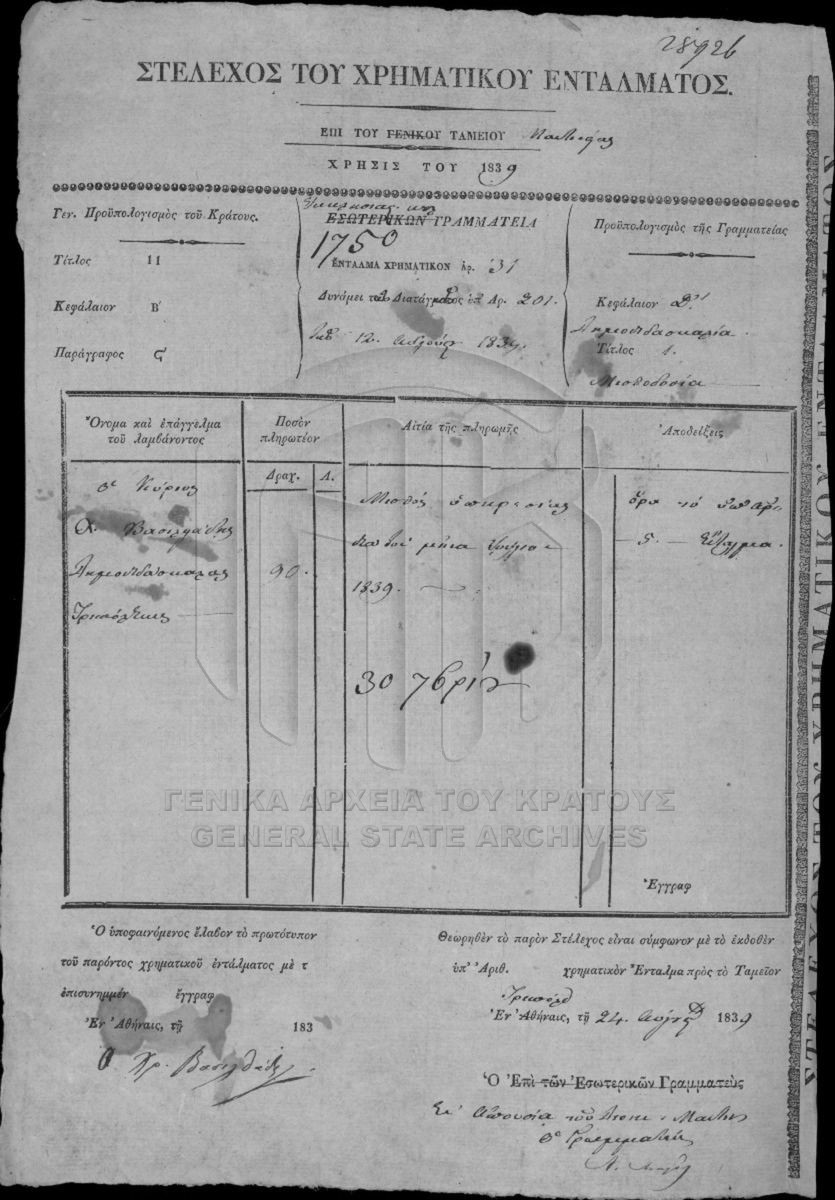 ΣΤΕΛΕΧΟΣ ΤΟΥ ΧΡΗΜΑΤΙΚΟΥ ΕΝΤΑΛΜΑΤΟΣ.
ΕΠΙ ΤΟΥ ΓΕΝΙΚΟΥ ΤΑΜΕΙΟΥ
ΧΡΗΣΙΣ ΤΟΥ 1839
Γεν. Προϋπολογισμὸς τοῦ Κράτους.
Τίτλος 11
Κεφάλαιον Β'
Παράγραφος ς'
ΕΣΩΤΕΡΙΚΩΝ ΓΡΑΜΜΑΤΕΙΑ
1750
ΕΝΤΑΛΜΑ ΧΡΗΜΑΤΙΚΟΝ ἀρ. 31
Δυνάμει τοῦ Διατάγματος ὑπ' Ἀρ. 201.
12. 1839.
Προϋπολογισμὸς τῆς Γραμματείας
Κεφάλαιον
Δημοδιδασκαλία.
Τίτλος 1.
Μισθοδοσία
Ὄνομα καὶ ἐπάγγελμα
τοῦ λαμβάνοντος
Ποσὸν
πληρωτέον
Αἰτία τῆς πληρωμῆς
Ἀποδείξεις
Δραχ. Λ.
ὁ Κύριος
Χ. Βασιλειάδης
Δημοδιδάσκαλος
Τριπόλεως
90.
Μισθὸς ὑπηρεσίας
διὰ τὸν μῆνα
1839.
ὅρα τὸ ὑπ' ἀρ.
5. Ἔνταλμα.
30 7βρίου
Ἔγγραφ
ΓΕΝΙΚΑ ΑΡΧΕΙΑ ΤΟΥ ΚΡΑΤΟΥΣ
GENERAL STATE ARCHIVES
Ὁ ὑποφαινόμενος ἔλαβον τὸ πρωτότυπον
τοῦ παρόντος χρηματικοῦ ἐντάλματος μὲ τ
ἐπισυνημμέν ἔγγραφ
Ἐν Ἀθήναις, τῇ 183
Ὁ Χρ. Βασιλειάδης
Θεωρηθὲν τὸ παρὸν Στέλεχος εἶναι σύμφωνον μὲ τὸ ἐκδοθὲν
ὑπ' Ἀριθ. χρηματικὸν Ἔνταλμα πρὸς τὸ Ταμεῖον
Ἐν Ἀθήναις, τῇ 24. 1839
Ὁ Ἐπὶ τῶν Ἐσωτερικῶν Γραμματεὺς
Ἐν Ἀπουσίᾳ τοῦ
ὁ Γραμματεὺς
ΣΤΕΛΕΧΟΣ ΤΟΥ ΧΡΗΜΑΤΙΚΟΥ ΕΝΤΑΛΜΑΤΟΣ